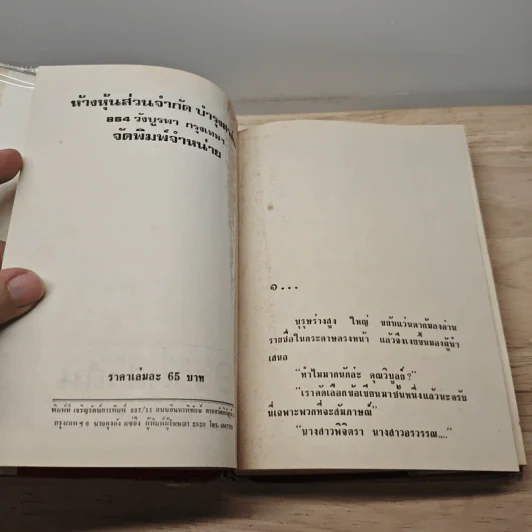 ห้างหุ้นส่วนจำกัด
884 วังบูรพา กรุงเทพฯ
จัดพิมพ์จำหน่าย
ราคาเล่มละ 65 บาท
พิมพ์ที่ เจริญรัตน์การพิมพ์
กรุงเทพฯ 2520 โทร.
๑...
บุรุษร่างสูง ใหญ่ ขยับแว่นตาก้มลงอ่าน
รายชื่อในกระดาษตรงหน้า แล้วจึงเงยขึ้นมองผู้นำ
เสนอ
"ทำไมมากนักล่ะ คุณวิบูลย์?"
"เราคัดเลือกข้อเขียนมาชั้นหนึ่งแล้วนะครับ
นี่เฉพาะพวกที่จะสัมภาษณ์"
"นางสาวพิจิตรา นางสาวอรวรรณ...."